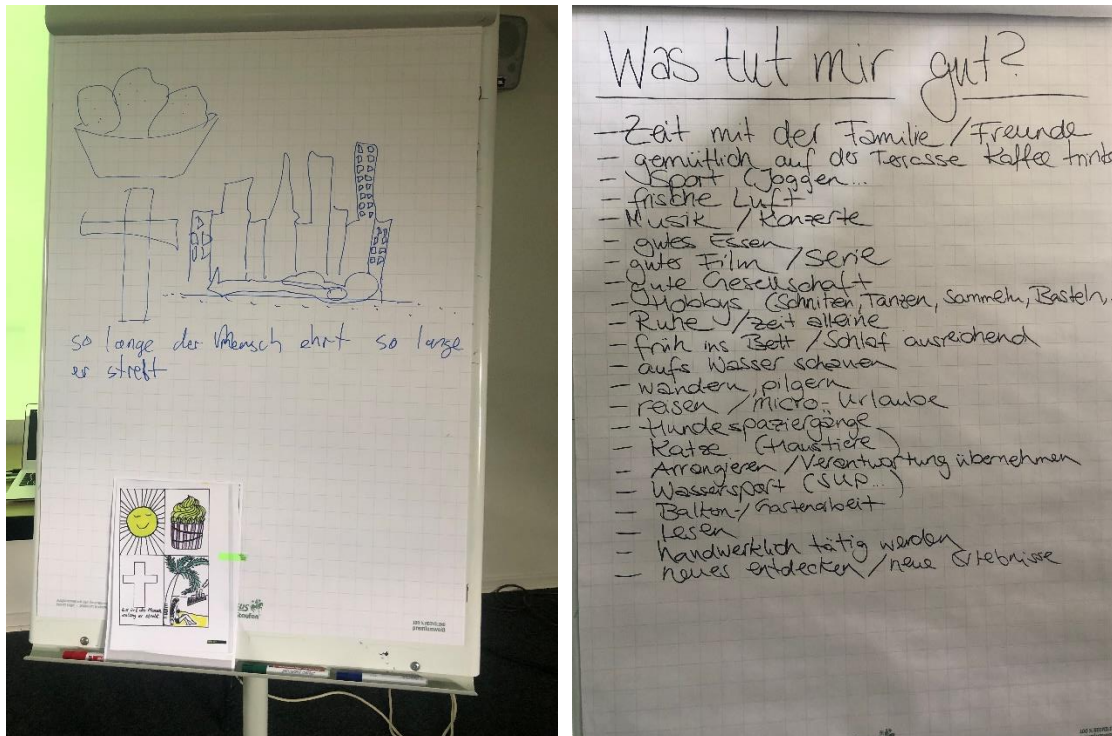 so lange der Mensch ehrt so lange
er streft
Was tut mir gut?
- Zeit mit der Familie / Freunde
- gemütlich auf der Terasse Kaffee trink
- Sport (Joggen...
- frische Luft
- Musik / Konzerte
- gutes Essen
- guter Film / Serie
- gute Gesellschaft
- Hobbys (Schnitzen, Tanzen, Sammeln, Basteln,
- Ruhe / Zeit alleine
- früh ins Bett / Schlaf ausreichend
- aufs Wasser schauen
- wandern, pilgern
- reisen / micro-Urlaube
- Hundespaziergänge
- Katze (Haustiere)
- Arrangieren / Verantwortung übernehmen
- Wassersport (SUP...)
- Balkon-/Gartenarbeit
- Lesen
- handwerklich tätig werden
- neues entdecken / neue Erlebnisse